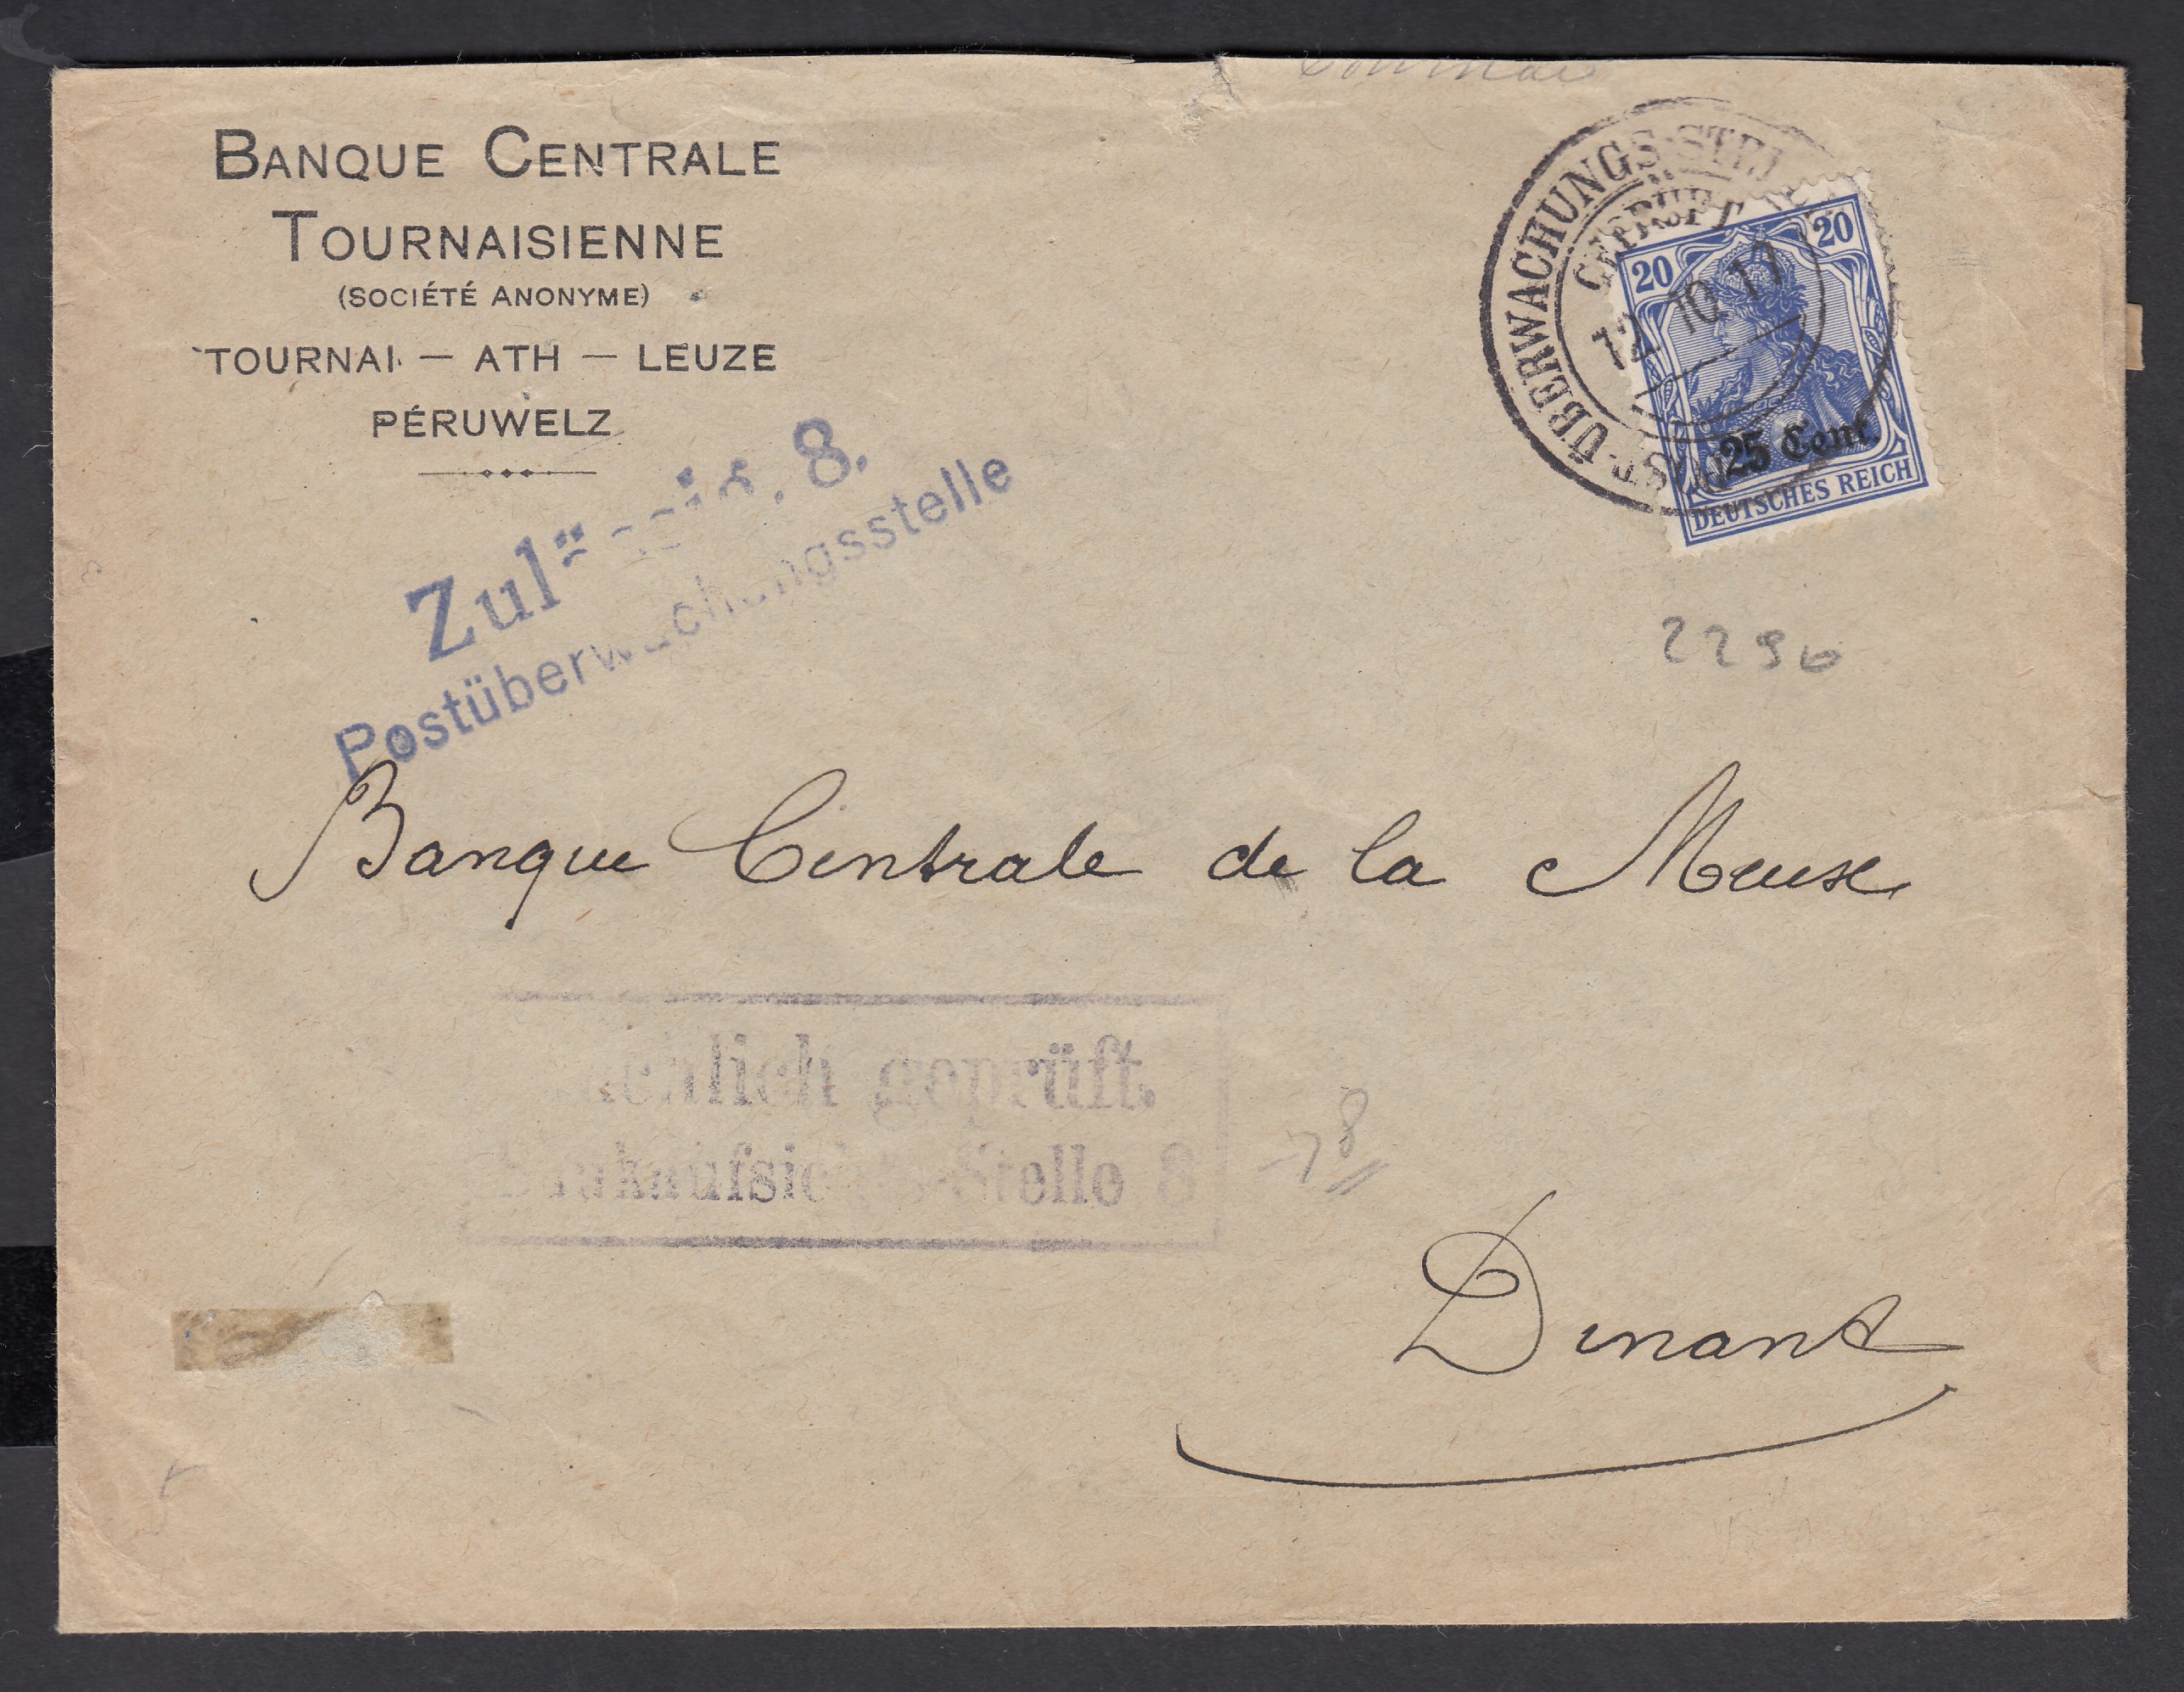 BANQUE CENTRALE
TOURNAISIENNE
(SOCIÉTÉ ANONYME)
TOURNAI — ATH — LEUZE
PÉRUWELZ
ÜBERWACHUNGS-STEL
GEPRÜFT
12 10 17
20 20
25 Cent.
DEUTSCHES REICH
8.
Postüberwachungsstelle
Banque Centrale de la Meuse
geprüft.
Stelle 8
8
Dinant